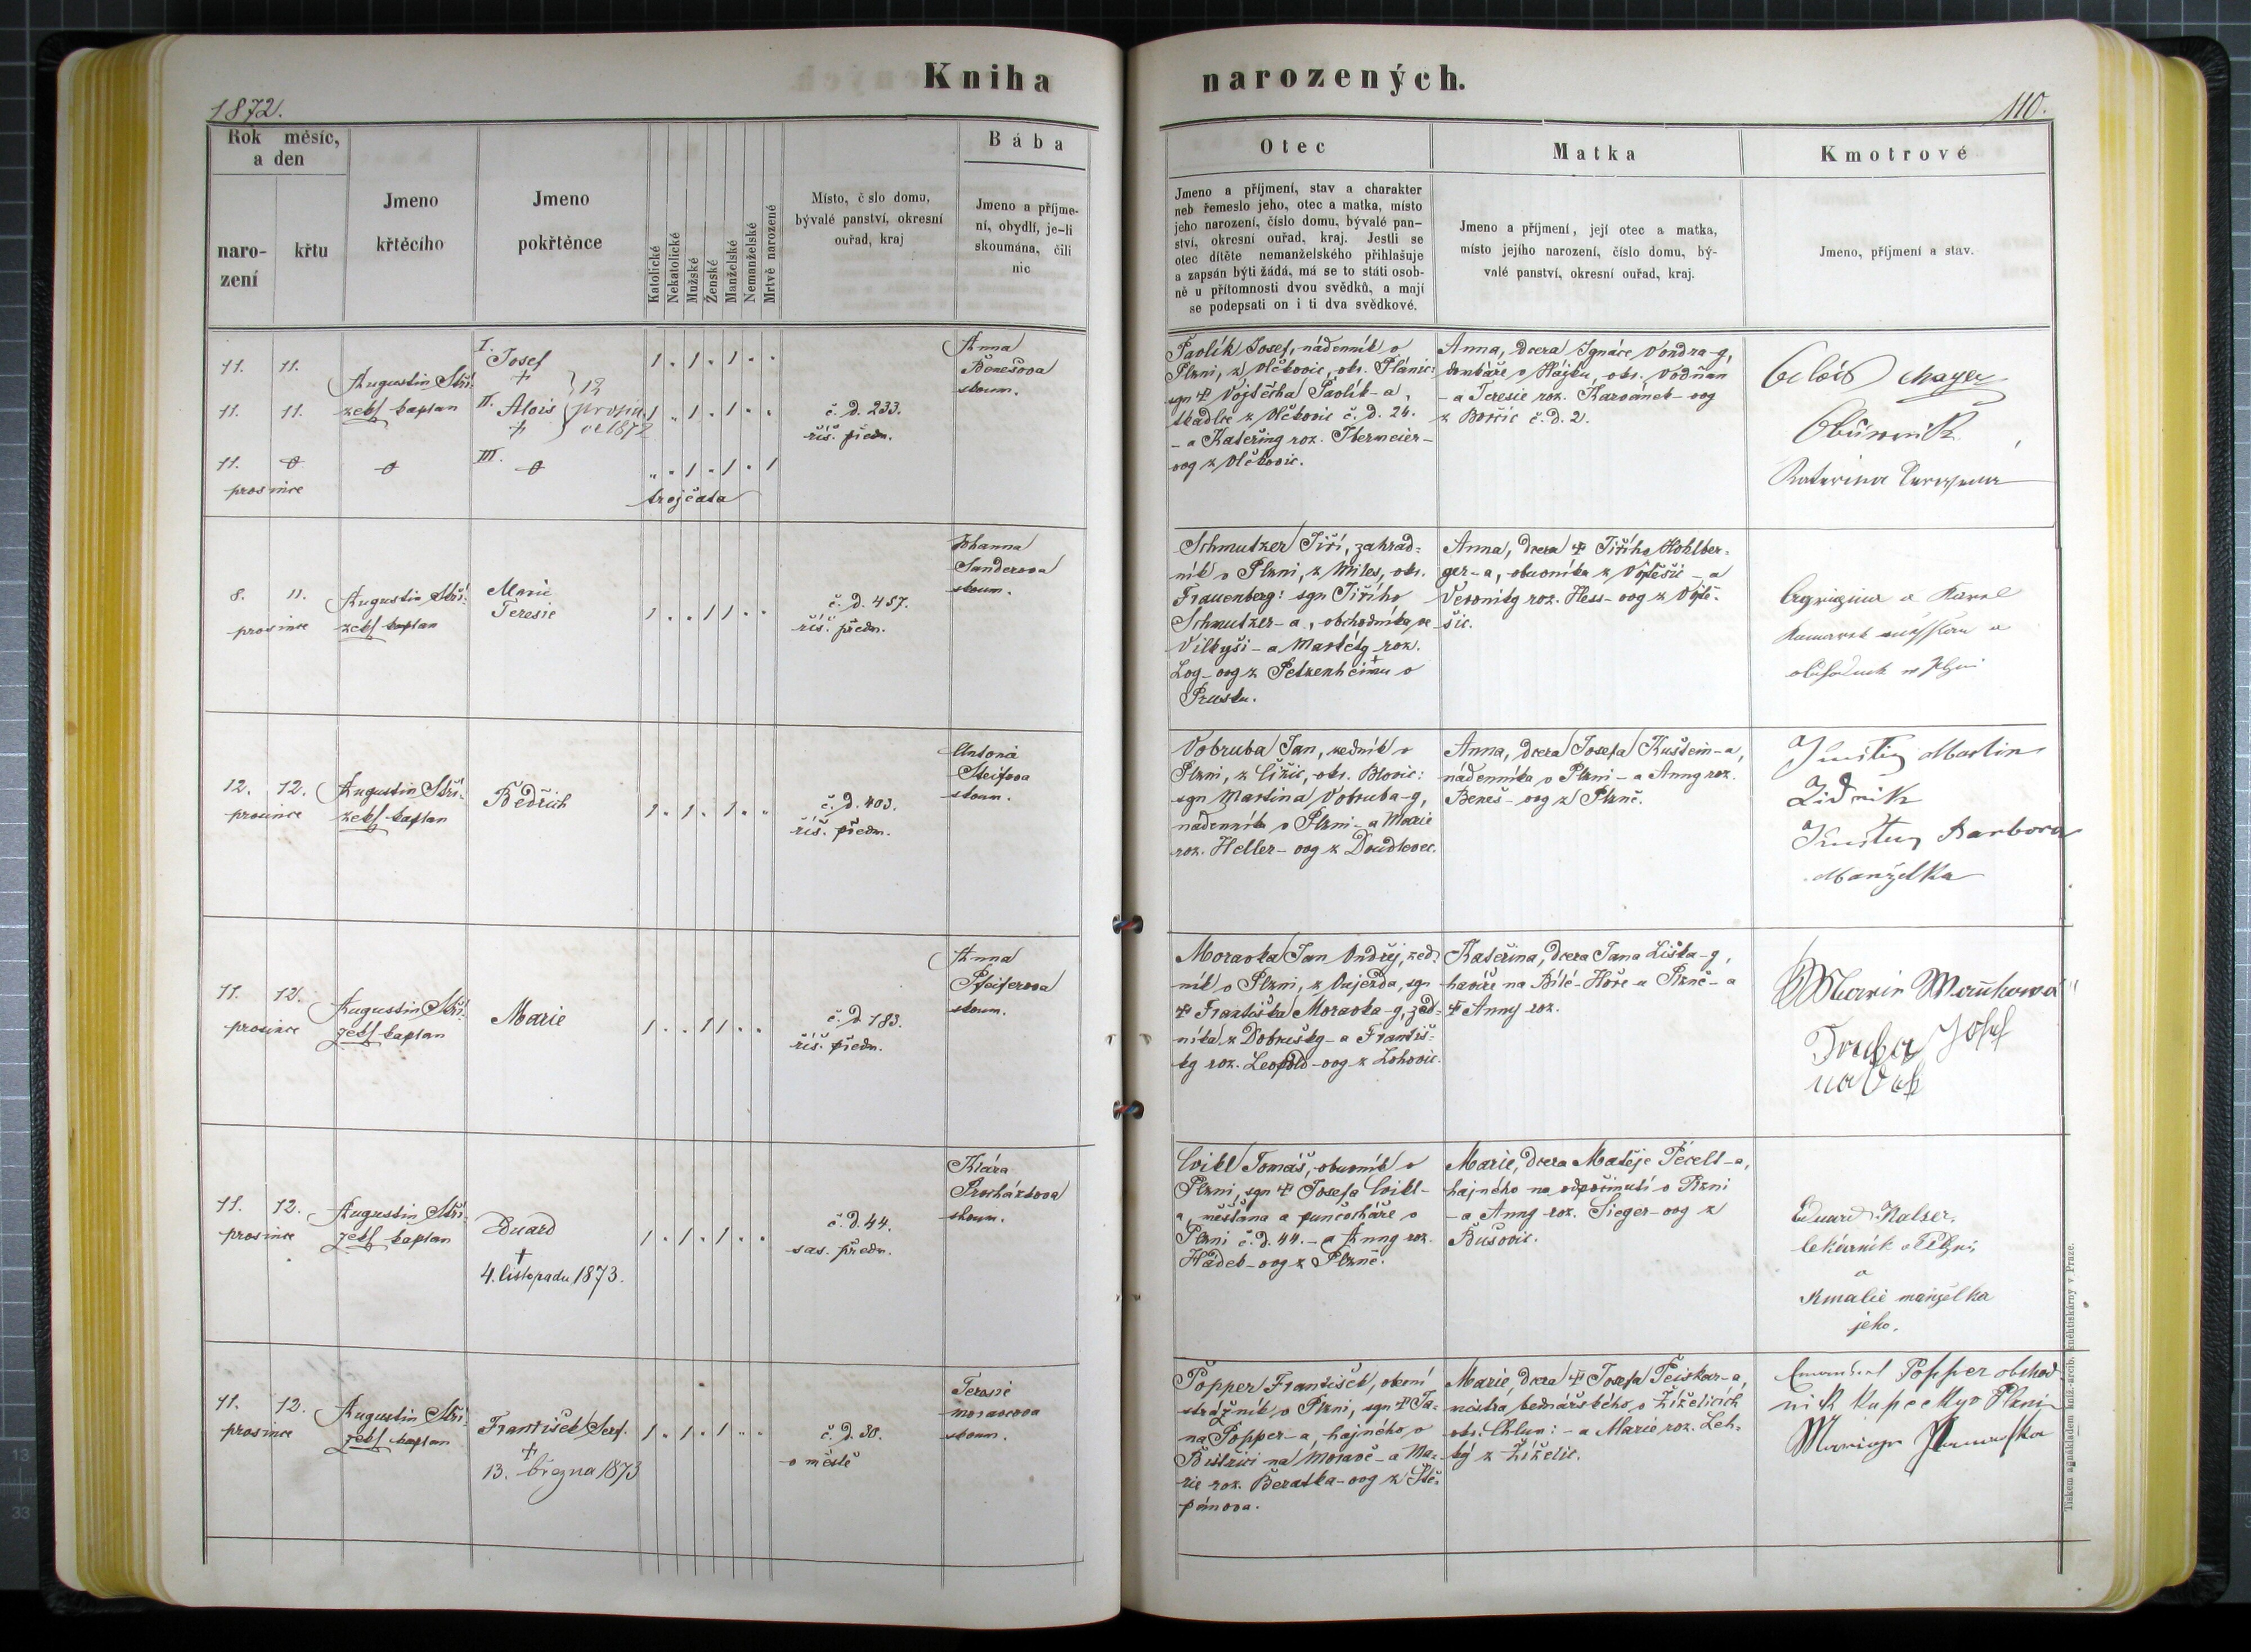 Kniha narozených.
1872.
110.
Rok měsíc,
a den
naro-
zení
křtu
Jmeno
křtěcího
Jmeno
pokřtěnce
Katolické
Nekatolické
Mužské
Ženské
Manželské
Nemanželské
Mrtvě narozené
Místo, č slo domu,
bývalé panství, okresní
ouřad, kraj
Bába
Jmeno a příjme-
ní, obydlí, je-li
skoumána, čili
nic
Otec
Jmeno a příjmení, stav a charakter
neb řemeslo jeho, otec a matka, místo
jeho narození, číslo domu, bývalé pan-
ství, okresní ouřad, kraj. Jestli se
otec dítěte nemanželského přihlašuje
a zapsán býti žádá, má se to státi osob-
ně u přítomnosti dvou svědků, a mají
se podepsati on i ti dva svědkové.
Matka
Jmeno a příjmení, její otec a matka,
místo jejího narození, číslo domu, bý-
valé panství, okresní ouřad, kraj.
Kmotrové
Jmeno, příjmení a stav.
11. 11.
Augustin Stří-
zek kaplan
I. Josef
+
11. 11.
II. Alois
+
12
prosin.
ce 1872
11.
prosince
III.
trojčata
č. d. 233.
říš. předm.
Anna
Benešova
skoum.
Pavlík Josef, nádenník v
Plzni, z Vlčkovic, okr. Plánic:
syn + Vojtěcha Pavlík-a,
tkadlce z Vlčkovic č. d. 24.
- a Kateřiny roz.
ovy z Vlčkovic.
Anna, dcera Ignáce Vondra-y,
domkáře v Hájku, okr. Vodňan
- a Teresie roz. Karvánek-ovy
č. d. 2.
Alois Mayer
Obuvník
Kateřina
8. 11.
prosince
Augustin Stří-
zek kaplan
Marie
Teresie
č. d. 457.
říš. předm.
Johanna
Sanderova
skoum.
Schmutzer Jiří, zahrad-
ník v Plzni, z Miles, okr.
Frauenberg: syn Jiřího
Schmutzer-a, obchodníka ve
Vilkyši - a Markéty roz.
Log-ovy z Petzenheimu v
Prusku.
Anna, dcera + Jiřího Kohlber-
ger-a, obuvníka z - a
Veroniky roz. Hess-ovy z
šic.
a Karel
12. 12.
prosince
Augustin Stří-
zek kaplan
Bedřich
č. d. 403.
říš. předm.
Antonie
Steifova
skoum.
Vobruba Jan, zedník v
Plzni, z Čižic, okr. Blovic:
syn Martina Vobruba-y,
nádenníka v Plzni - a Marie
roz. Heller-ovy z Doudlevec.
Anna, dcera Josefa Kuštein-a,
nádenníka v Plzni - a Anny roz.
Beneš-ovy z Plzně.
Martin
Židník
Barbora
Manželka
11. 12.
prosince
Augustin Stří-
zek kaplan
Marie
č. d. 183.
říš. předm.
Anna
Pfeiferova
skoum.
Moravka Jan Ondřej, zed-
ník v Plzni, z Oujezda, syn
+ Františka Moravka-y, zed-
níka z Dobrušky - a Františ-
ky roz. Leopold-ovy z Lohovic.
Kateřina, dcera Jana Liška-y,
havíře na Bílé-Hoře u Plzně - a
+ Anny roz.
Marie
Josef
11. 12.
prosince
Augustin Stří-
zek kaplan
Eduard
+
4. listopadu 1873.
č. d. 44.
sas. předm.
Klára
Procházkova
skoum.
Cvikl Tomáš, obuvník v
Plzni, syn + Josefa Cvikl-
a, měšťana a punčocháře v
Plzni č. d. 44. - a Anny roz.
Hádek-ovy z Plzně.
Marie, dcera Matěje Pécell-a,
hajného na odpočinutí v Plzni
- a Anny roz. Sieger-ovy z
Bušovic.
Eduard Kalser,
lekárník v Plzni,
a
Amalie manželka
jeho.
11. 12.
prosince
Augustin Stří-
zek kaplan
František Ser.
+
13. března 1873
č. d. 38.
v městě
Teresie
Moravcova
skoum.
Popper František, obecní
strážník v Plzni, syn + Ja-
na Popper-a, hajného v
Bistřici na Moravě - a Ma-
rie roz. Beratka-ovy z Ště-
pánova.
Marie, dcera + Josefa Peiskar-a,
mistra bednářského v Žiželicích
okr. Chlum: - a Marie roz. Leh-
ký z Žiželic.
Emanuel Popper obchod
ník Kupecky v Plzni
Tiskem a nákladem kníž.-arcib. kněhtiskárny v Praze.